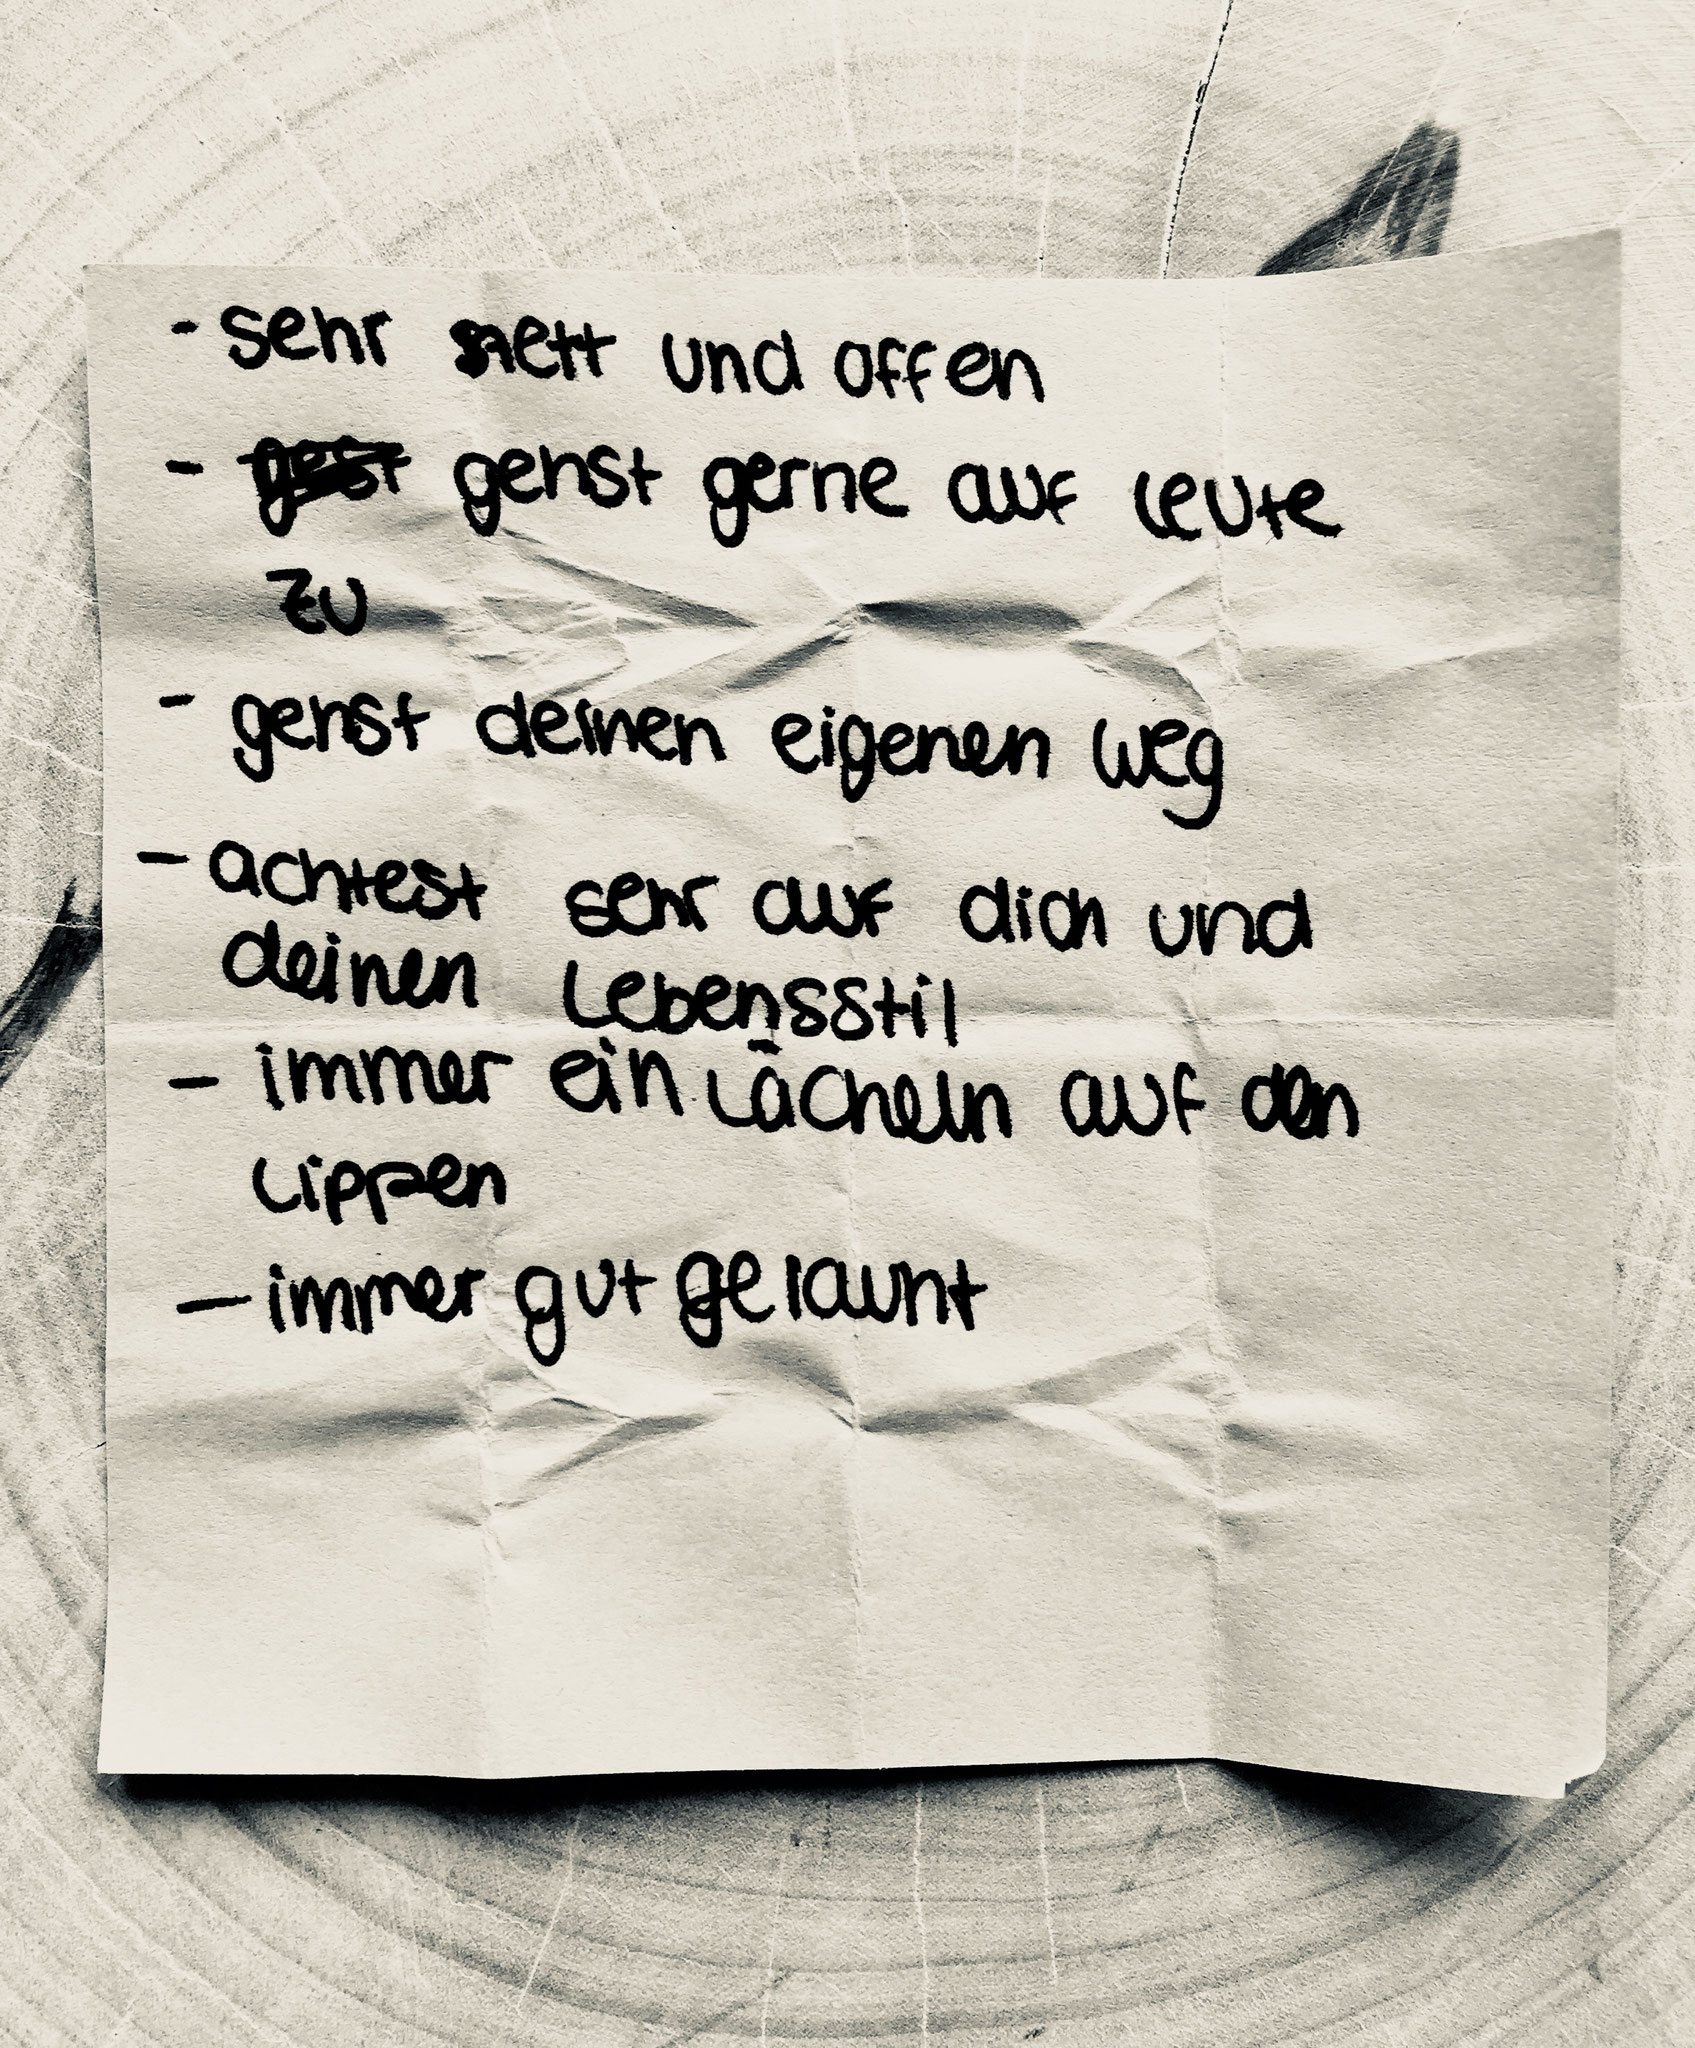 - sehr nett und offen
- gehst gerne auf Leute
zu
- gehst deinen eigenen Weg
- achtest sehr auf dich und
deinen Lebensstil
- immer ein Lächeln auf den
Lippen
- immer gut gelaunt